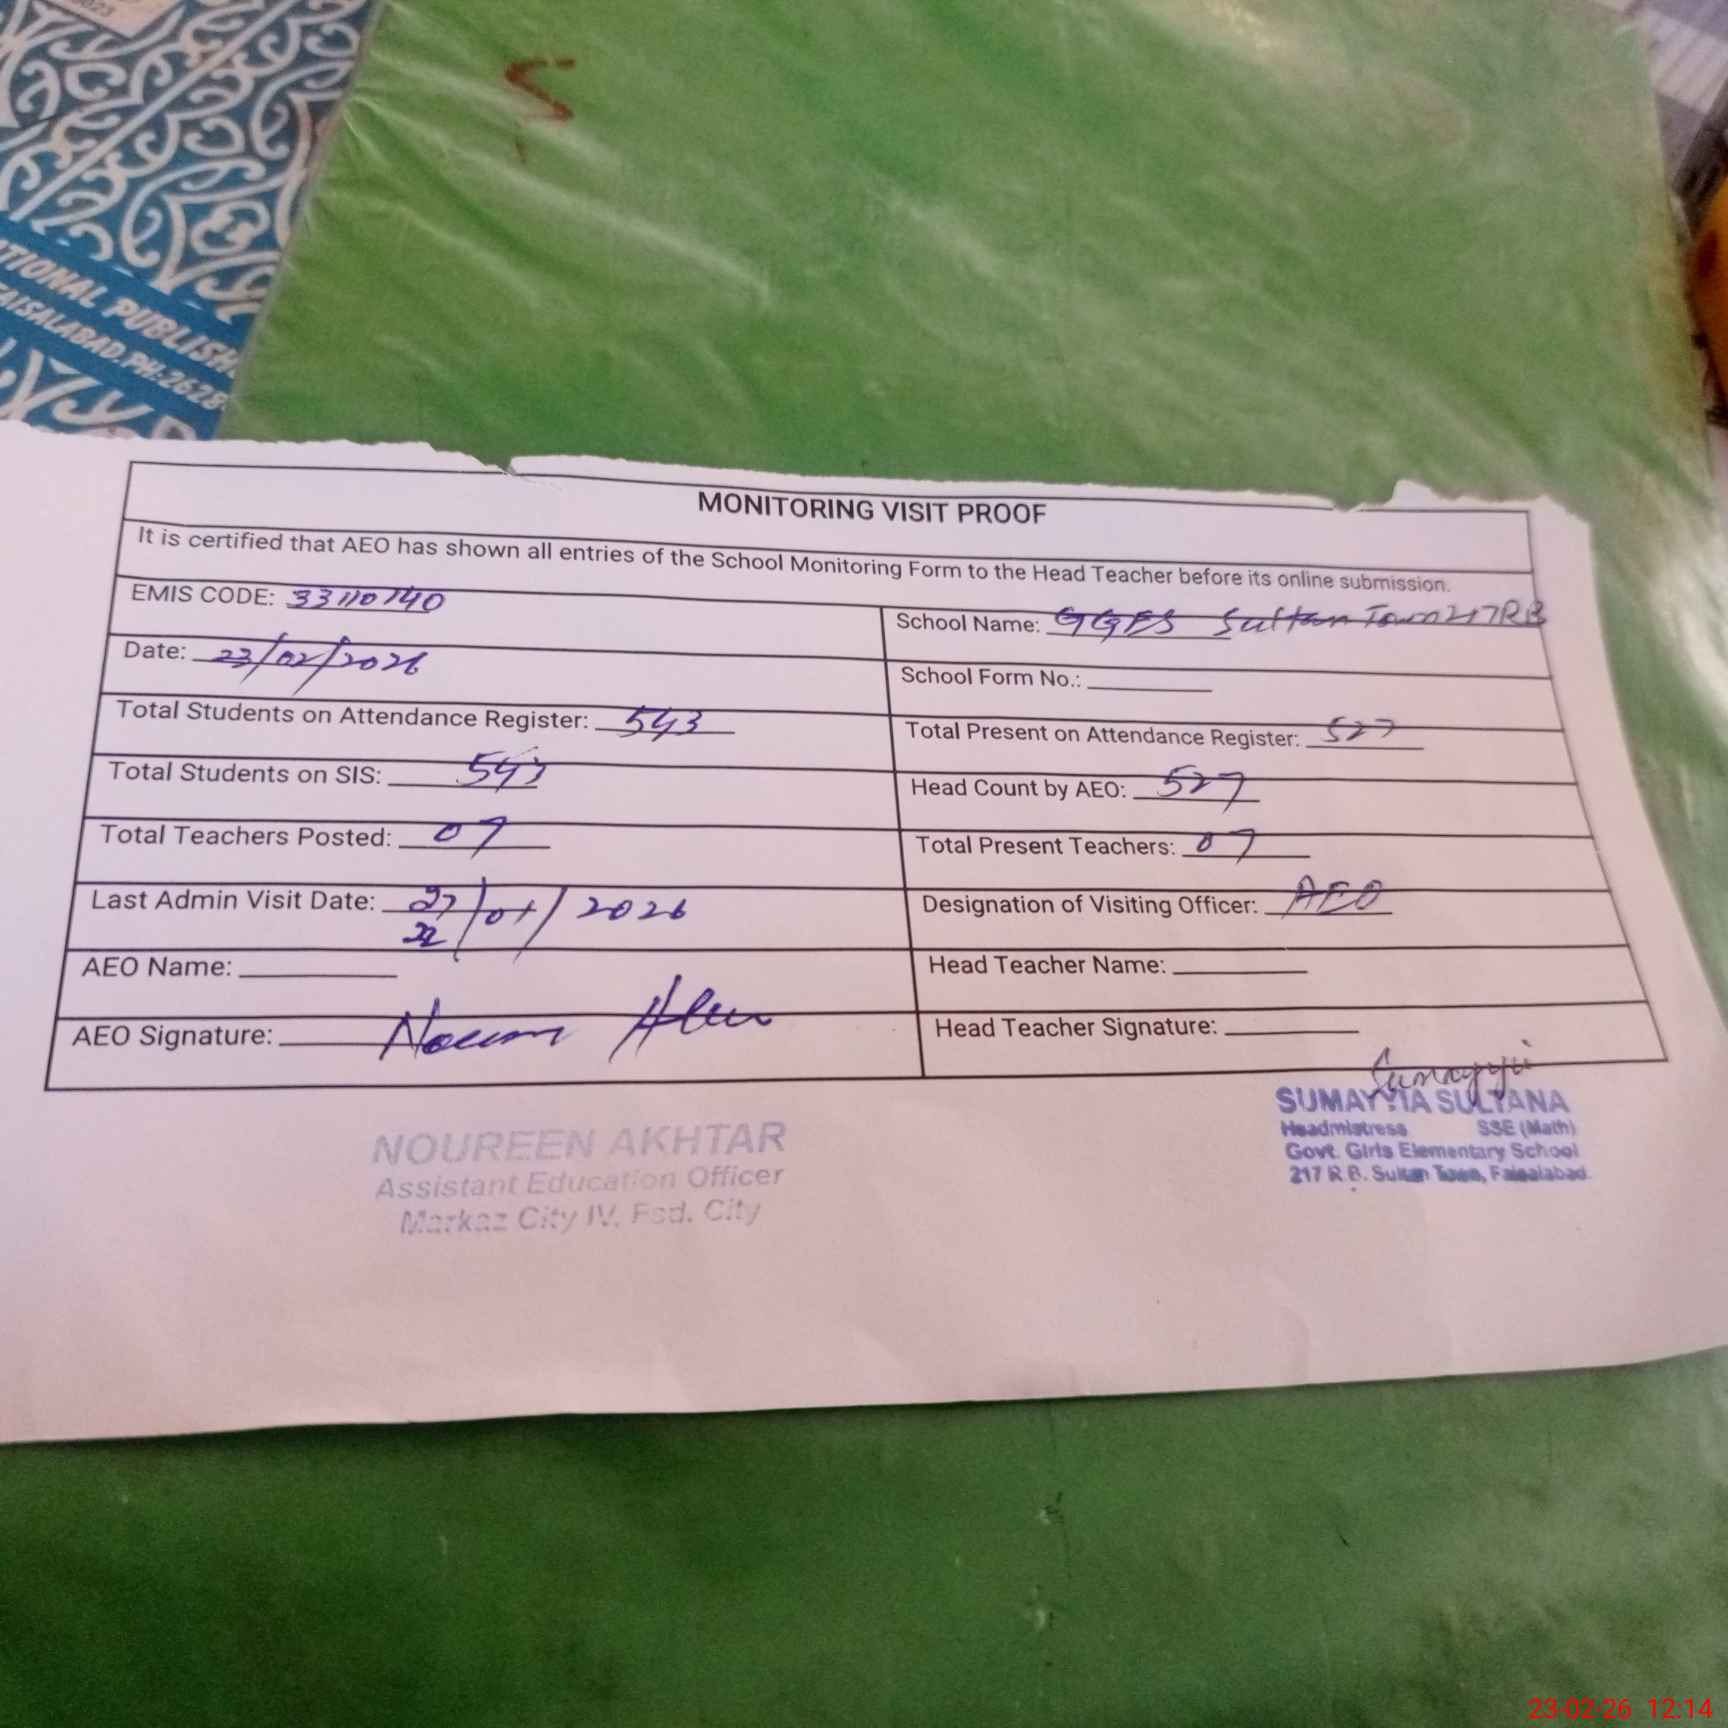 2023
TIONAL PUBLISH
FAISALABAD. PH:2628
MONITORING VISIT PROOF
It is certified that AEO has shown all entries of the School Monitoring Form to the Head Teacher before its online submission.
EMIS CODE: 33110140
School Name: GGES Sultan Town 217RB
Date: 23/02/2026
School Form No.:
Total Students on Attendance Register: 543
Total Present on Attendance Register: 527
Total Students on SIS: 543
Head Count by AEO: 527
Total Teachers Posted: 07
Total Present Teachers: 07
Last Admin Visit Date: 27/01/2026
22
Designation of Visiting Officer: AEO
AEO Name:
Head Teacher Name:
AEO Signature:
Head Teacher Signature:
Sumayyia
SUMAYYIA SULTANA
Headmistress SSE (Math)
Govt. Girls Elementary School
217 R.B. Sultan Town, Faisalabad.
NOUREEN AKHTAR
Assistant Education Officer
Markaz City IV, Fsd. City
23-02-26 12:14